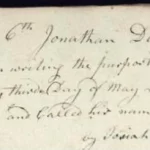 6th Jonathan D
writing the purpos
third Day of May
and Called his nam
by Josiah